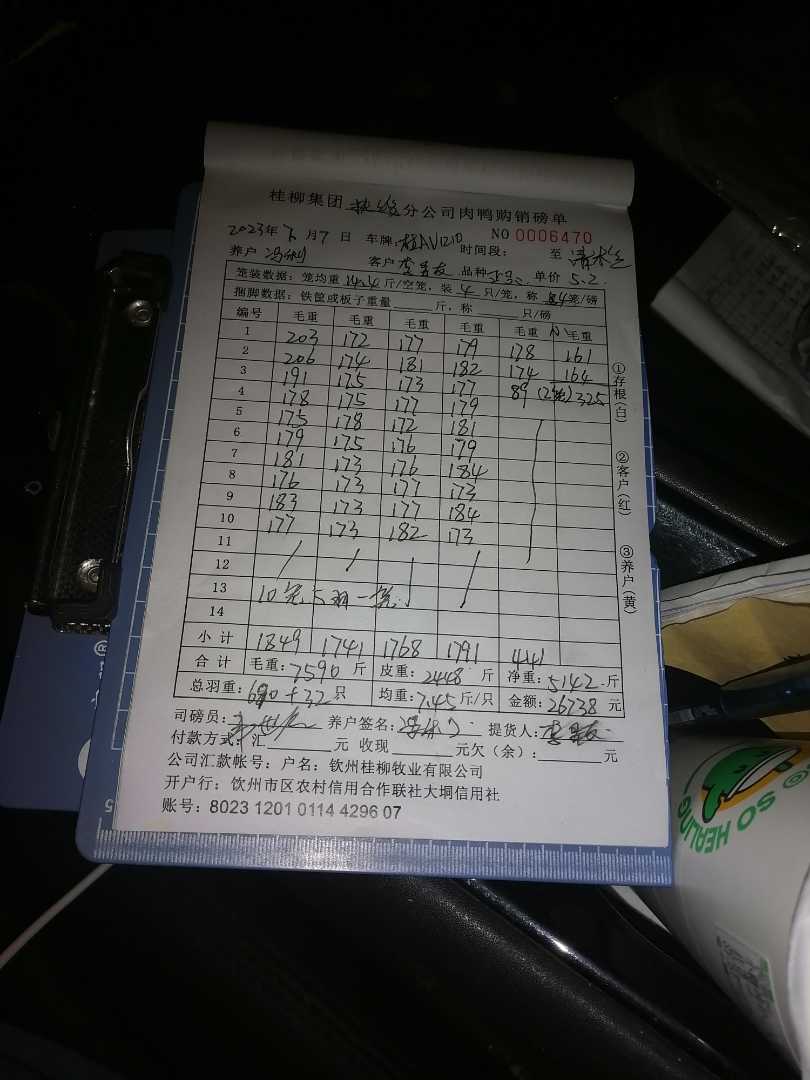 桂柳集团 分公司肉鸭购销磅单
2023年 月7日 车牌:桂AV1210 NO 0006470
养户 冯 客户 李 时间段: 至
品种 单价 5.2
笼装数据:笼均重 14.4 斤/空笼,装 4 只/笼,称 笼/磅
捆脚数据:铁筐或板子重量 斤,称 只/磅
编号 毛重 毛重 毛重 毛重 毛重 毛重
1 203 172 177 179 178 161
2 206 174 181 182 174 164
3 191 175 173 177 89 325
4 178 175 177 179
5 175 178 172 181
6 179 175 176 179
7 181 173 176 184
8 176 173 177 173
9 183 173 177 184
10 177 173 182 173
11
12
13 10 5 一
14
小计 1849 1741 1768 1791 441
合计 毛重:7590 斤 皮重:2448 斤 净重:5142 斤
总羽重: +32 只 均重:7.45 斤/只 金额:26738 元
司磅员: 养户签名: 提货人:李
付款方式:汇 元 收现 元欠(余): 元
公司汇款帐号:户名:钦州桂柳牧业有限公司
开户行:钦州市区农村信用合作联社大垌信用社
账号:8023 1201 0114 4296 07
①存根(白) ②客户(红) ③养户(黄)
SO HEALING